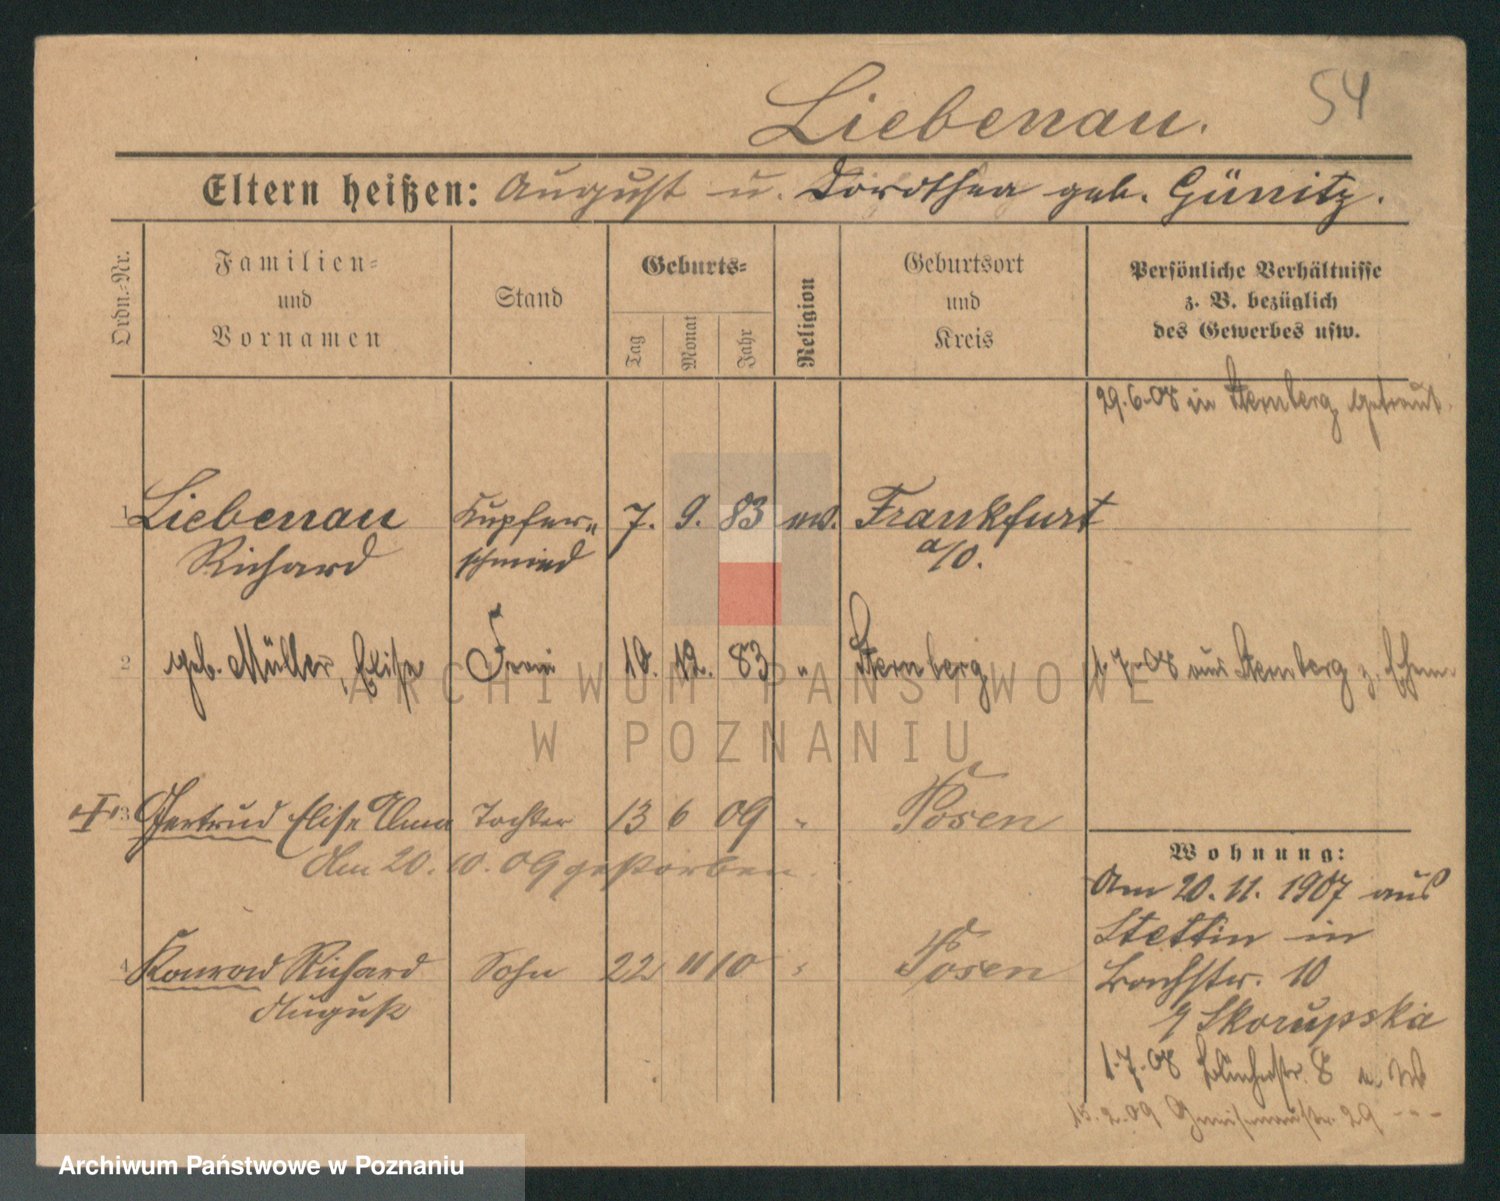 Liebenau. 54
Eltern heißen: August u. Dorothea geb. Günitz.
Ordn.-Nr.
Familien-
und
Vornamen
Stand
Geburts-
Tag
Monat
Jahr
Religion
Geburtsort
und
Kreis
Persönliche Verhältnisse
z. B. bezüglich
des Gewerbes usw.
29.6.08 in Sternberg getraut.
1 Liebenau Kupfer- 7. 9. 83 ev. Frankfurt
Richard schmied a/O.
2 geb. Müller, Elise Frau 19. 12. 83 " Sternberg 1.7.08 aus Sternberg z. Ehem.
3 Gertrud Elise Alma Tochter 13 6 09 " Posen
Am 20. 10. 09 gestorben.
4 Konrad Richard Sohn 22 11 10 " Posen
August
Wohnung:
Am 20. 11. 1907 aus
Stettin in
10
Skorupska
1.7.08 Blücherstr. 8
15.2.09 Gneisenaustr. 29 - - -
ARCHIWUM PAŃSTWOWE
W POZNANIU
Archiwum Państwowe w Poznaniu